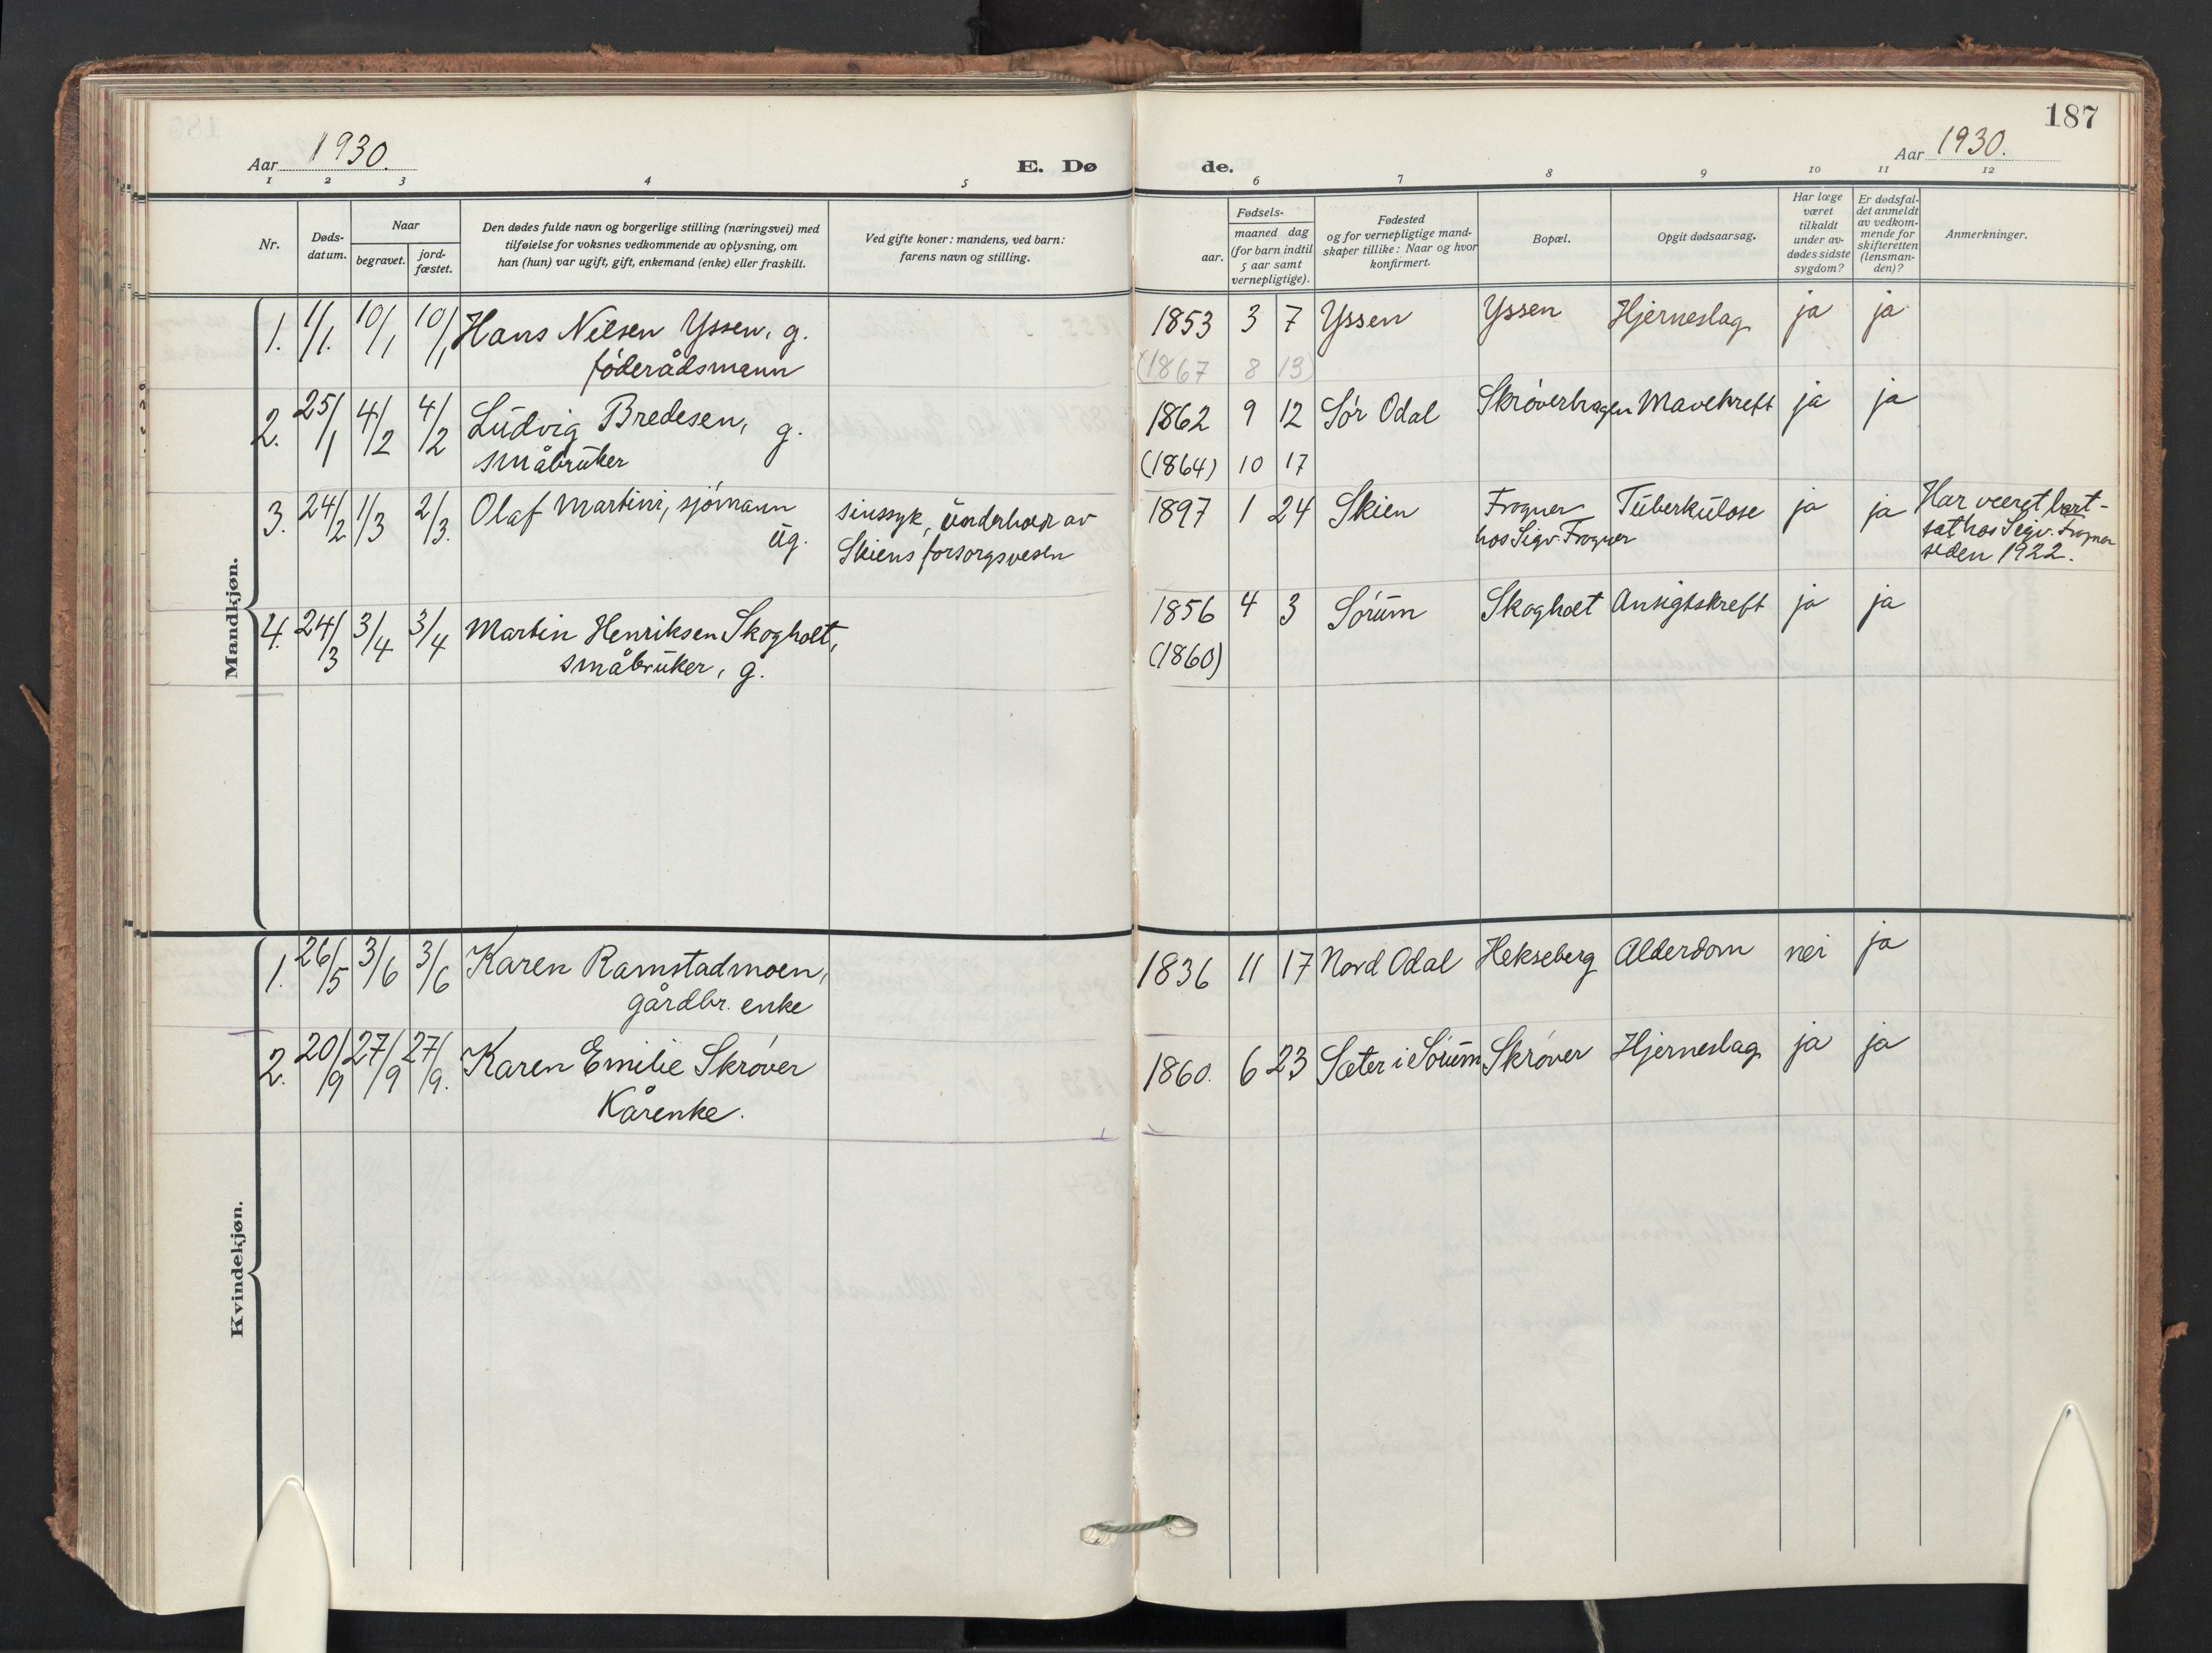 187
Aar 1930.
E. Dø
de.
Aar 1930.
1 2 3 4 5 6 7 8 9 10 11 12
Nr.
Døds-
datum.
Naar
begravet.
jord-
fæstet.
Den dødes fulde navn og borgerlige stilling (næringsvei) med
tilføielse for voksnes vedkommende av oplysning, om
han (hun) var ugift, gift, enkemand (enke) eller fraskilt.
Ved gifte koner: mandens, ved barn:
farens navn og stilling.
Fødsels-
aar.
maaned dag
(for barn indtil
5 aar samt
vernepligtige).
Fødested
og for vernepligtige mand-
skaper tillike: Naar og hvor
konfirmert.
Bopæl.
Opgit dødsaarsag.
Har læge
været
tilkaldt
under av-
dødes sidste
sygdom?
Er dødsfal-
det anmeldt
av vedkom-
mende for
skifteretten
(lensman-
den)?
Anmerkninger.
Mandkjøn.
1. 1/1. 10/1 10/1 Hans Nilsen Yssen, g. 1853 3 7 Yssen Yssen Hjerneslag ja ja
føderådsmann (1867 8 13)
2. 25/1 4/2 4/2 Ludvig Bredesen, g. 1862 9 12 Sør Odal Skrøverhagen Mavekreft ja ja
småbruker (1864) 10 17
3. 24/2 1/3 2/3. Olaf Martini, sjømann sinssyk, underholdt av 1897 1 24 Skien Frogner Tuberkulose ja ja Har været bort-
ug. Skiens forsorgsvesen hos Sigv. Frogner sat hos Sigv. Frogner
siden 1922.
4. 24/3 3/4 3/4 Martin Henriksen Skogholt, 1856 4 3 Sørum Skogholt Ansigtskreft ja ja
småbruker, g. (1860)
Kvindekjøn.
1. 26/5 3/6 3/6 Karen Ramstadmoen, 1836 11 17 Nord Odal Hekseberg Alderdom nei ja
gårdbr. enke
2. 20/9 27/9 27/9. Karen Emilie Skrøver 1860. 6 23 Sæter i Sørum Skrøver Hjerneslag ja ja
Kårenke.